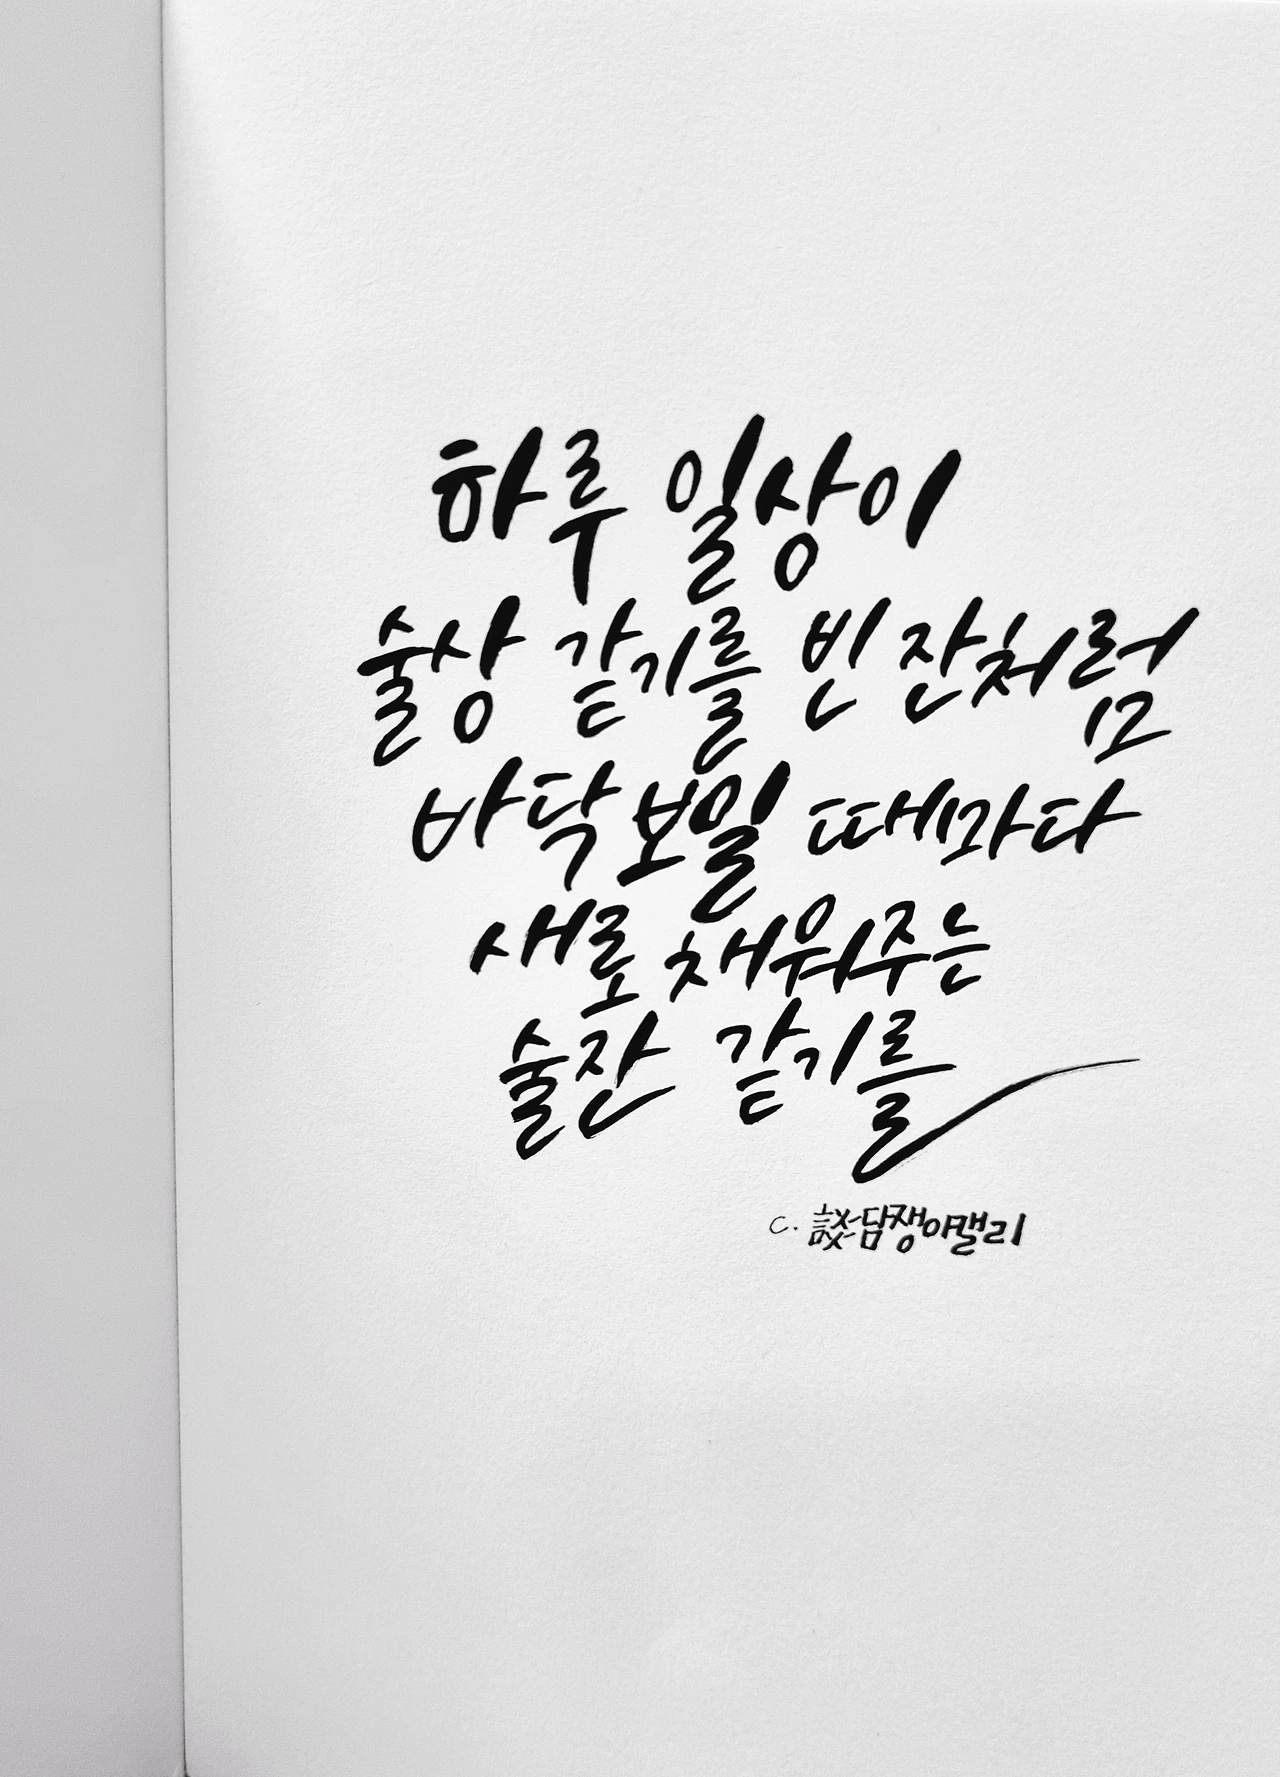 하루 일상이
술상 같기를 빈 잔처럼
바닥 보일 때마다
새로 채워주는
술잔 같기를
c. 談-담쟁이캘리